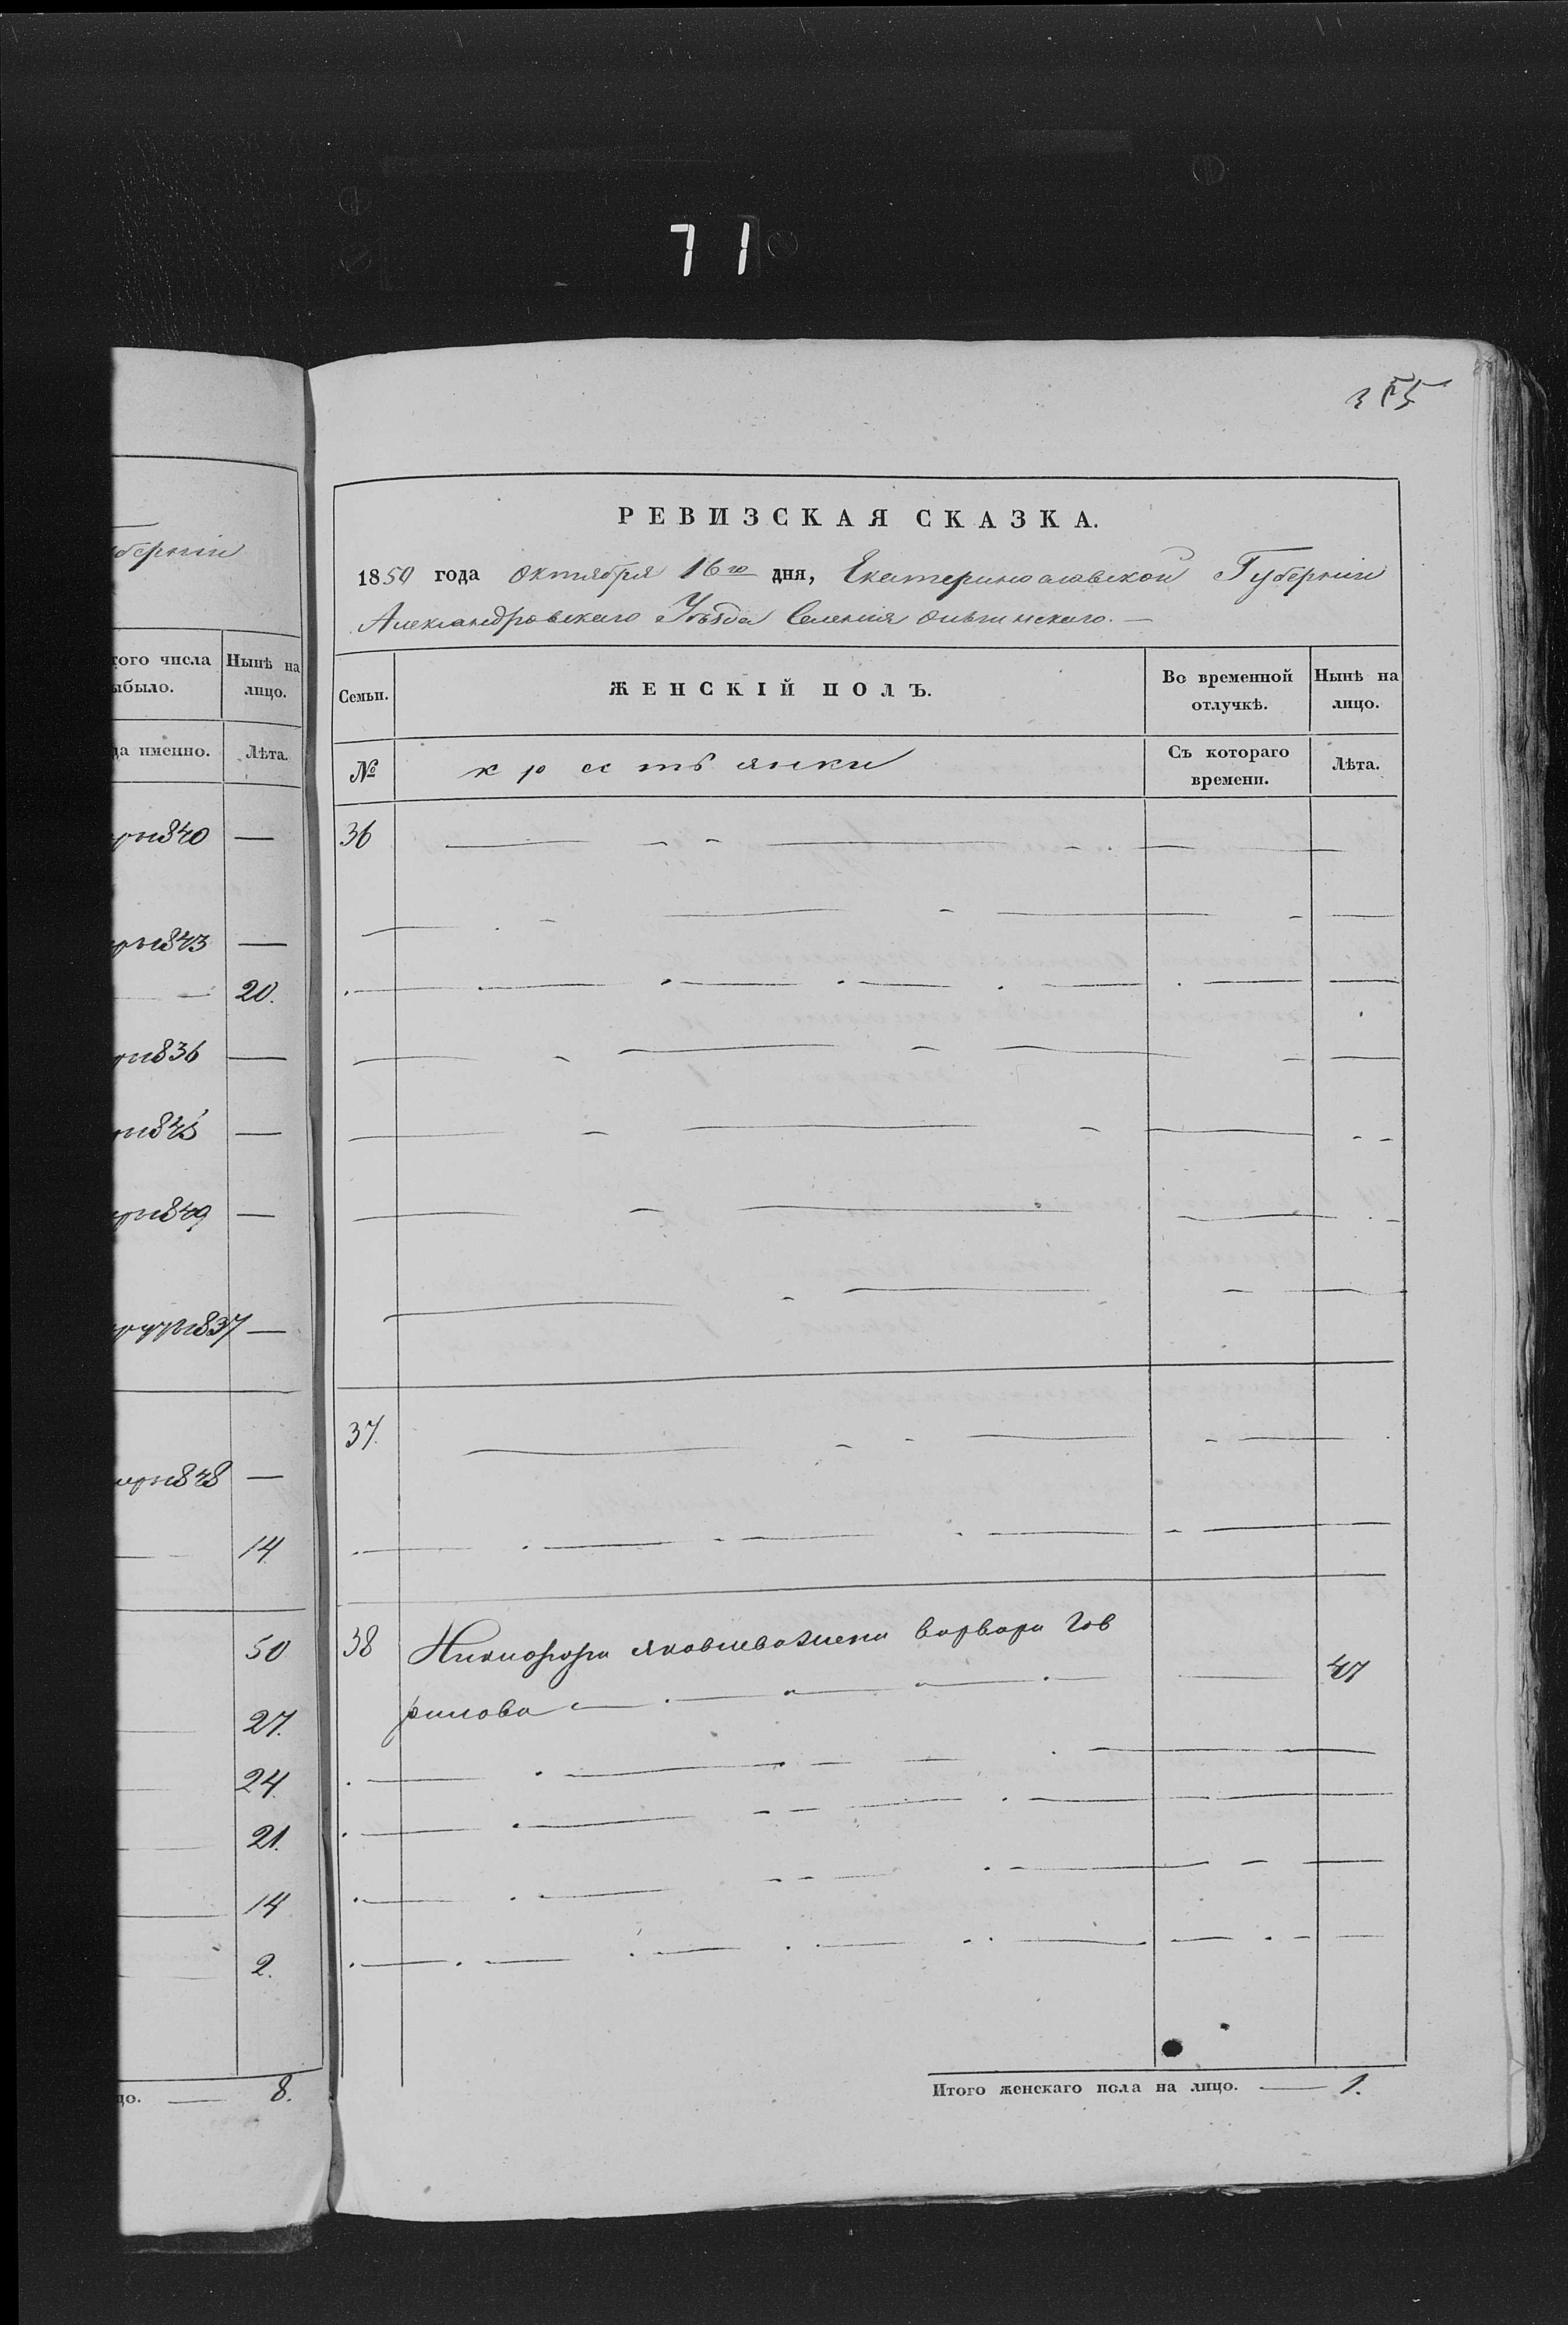 71
355
уберніи
того числа
Нынѣ на
ыбыло.
лицо.
да именно.
Лѣта.
1840 —
1843 —
— 20.
1836 —
1845 —
1849 —
1837 —
1848 —
— 14.
50
27.
24.
21.
14
2.
цо. — 8.
РЕВИЗСКАЯ СКАЗКА.
1850 года Октября 16го дня, Екатеринославской Губерніи
Александровскаго Уѣзда Селенія Ольгинскаго. —
Семьи.
ЖЕНСКІЙ ПОЛЪ.
Во временной
отлучкѣ.
Нынѣ на
лицо.
№
крестьянки
Съ котораго
времени.
Лѣта.
36
37.
38 Никифора Яковлева жена Варвара Гав
рилова — 47
Итого женскаго пола на лицо. — 1.